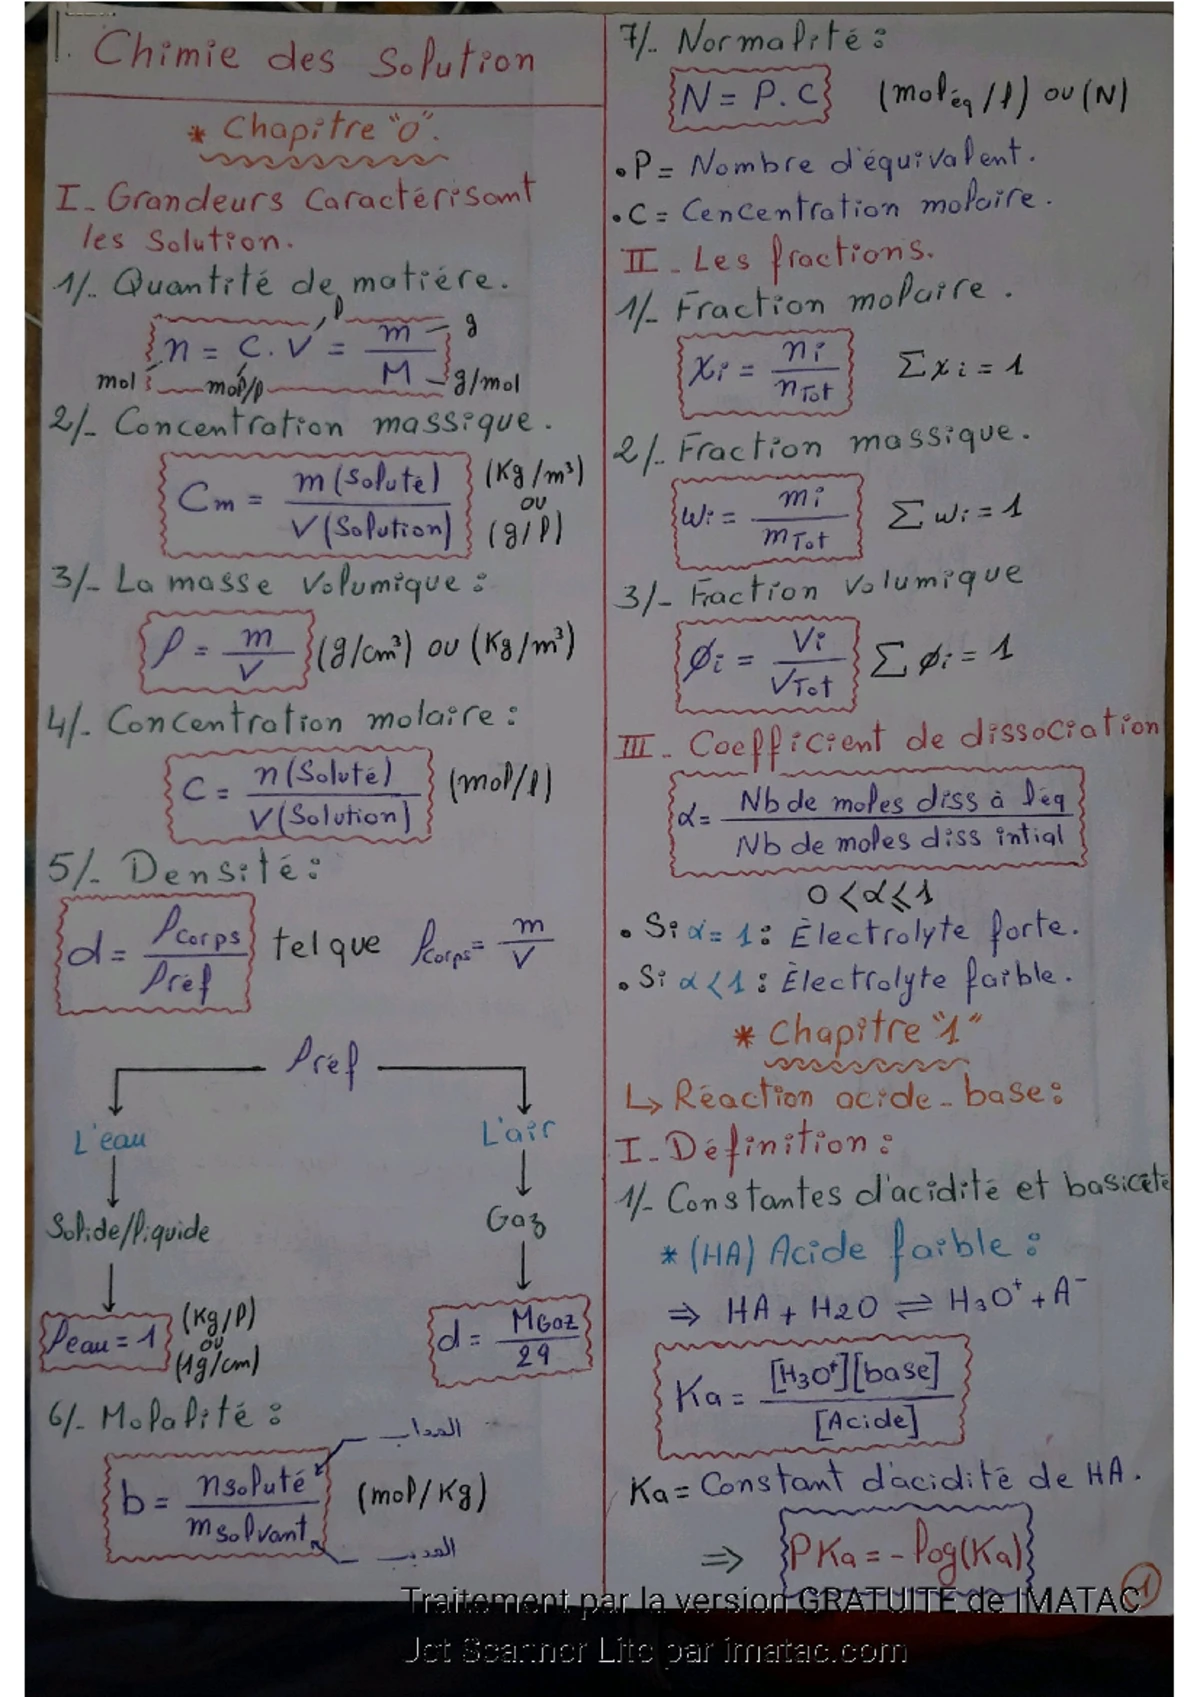 1. Chimie des Solution
* Chapitre "0".
I_ Grandeurs Caractérisant
les Solution.
1/. Quantité de matiére.
n = C.V = m/M
mol
mol/l
l
g
g/mol
2/_ Concentration massique.
Cm = m(Soluté) / V(Solution)
(Kg/m³)
ou
(g/l)
3/_ La masse Volumique :
ρ = m/V (g/cm³) ou (Kg/m³)
4/_ Concentration molaire :
C = n(Soluté) / V(Solution) (mol/l)
5/_ Densité :
d = ρcorps / ρréf tel que ρcorps = m/V
ρréf
L'eau
L'air
Solide/liquide
Gaz
ρeau = 1 (Kg/l)
ou
(1g/cm)
d = MGaz / 29
6/_ Molalité :
المذاب
b = nsoluté / msolvant (mol/Kg)
7/_ Normalité :
N = P.C (moléq/l) ou (N)
• P = Nombre d'équivalent.
• C = Cencentration molaire.
II_ Les fractions.
1/_ Fraction molaire.
xi = ni / nTot Σxi = 1
2/_ Fraction massique.
Wi = mi / mTot Σwi = 1
3/_ Fraction Volumique
Øi = Vi / VTot ΣØi = 1
III_ Coefficient de dissociation
α = Nb de moles diss à l'éq / Nb de moles diss intial
0 < α ⩽ 1
• Si α = 1 : Èlectrolyte forte.
• Si α < 1 : Èlectrolyte faible.
* Chapitre "1"
↳ Réaction acide_base :
I_ Définition :
1/_ Constantes d'acidité et basicété
* (HA) Acide faible :
⇒ HA + H2O ⇌ H3O⁺ + A⁻
Ka = [H3O⁺][base] / [Acide]
Ka = Constant d'acidité de HA.
⇒ PKa = - log(Ka)
1
Traitement par la version GRATUITE de IMATAC
Jet Scanner Lite par imatac.com